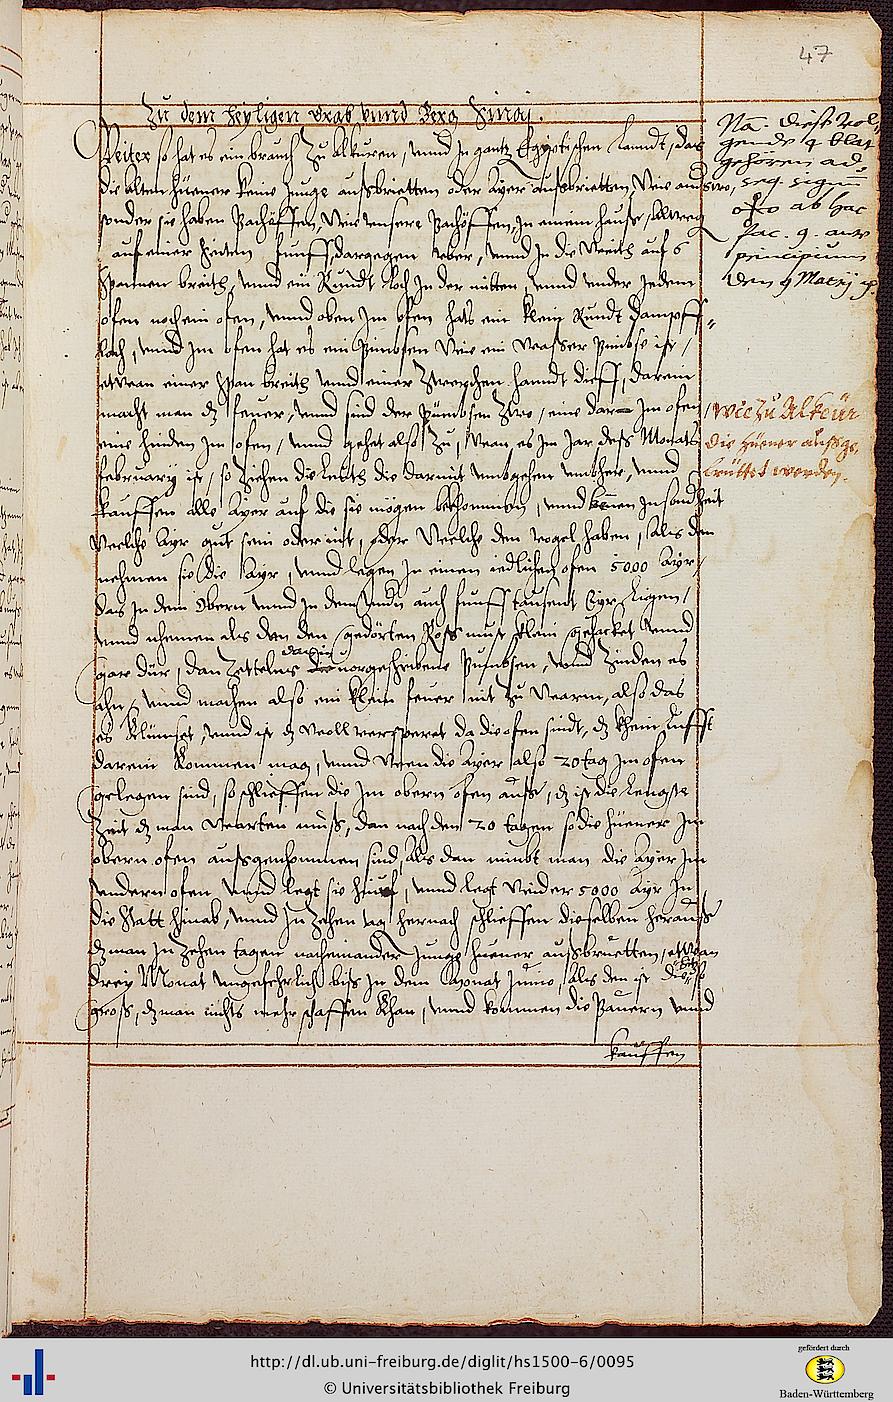 47
Zu dem heyligen Grab vnnd Berg Sinaj.
Weiter so hat es ein brauch zu Alkuren, vnnd in gantz Egiptischen Landt, das
die alten hüener keine junge außbrietten oder Ayer außbrietten, wie and
sonder sie haben Bachöffen, wie vnsere Bachöffen, in einem hause, Allweg
auf einer seiten funff, dargegen vber, vnnd in die weith auf 6
spannen breith, vnnd ein Rundt loch in der mitten, vnnd vnder jedem
ofen noch ein ofen, vnnd oben im ofen hats ein klein Rundt dampff-
loch, vnnd im ofen hat es ein wie ein wasser ist,
etwan einer span breith vnnd einer zwerchen handt dieff, darein
macht man dz feuer, vnnd sind der zwo, eine im ofen,
eine hinden im ofen, vnnd gehet also zu, wan es im Jar deß Monats
february ist, so ziehen die leuth die darmit vmbgehen vmbher, vnnd
kauffen alle Ayer auf die sie mögen bekhommen, vnnd
welche Ayr gut sein oder nit, oder welche den vogel haben, Als den
nehmen sie die Ayr, vnnd legen in einen iedlichen ofen 5000 Ayr,
das in dem Obern vnnd in dem vndern auch funff tausent Eyr ligen,
vnnd nhemen als dan den gedörten Roß mist klein gehacket vnnd
gar dür, dan zettelns darein vorgeschribene vnnd zinden es
ahn, vnnd machen also ein klein feuer nit zu warm, also das
es vnnd ist dz woll versperet da die ofen sindt, dz khein Lufft
darein kommen mag, vnnd wen die Ayer also 20 tag im ofen
gelegen sind, so schlieffen die im obern ofen auß, dz ist die lengste
Zeit dz man warten muß, dan nach den 20 tagen so die hüener im
obern ofen außgenhommen sind, Als dan nimbt man die Ayer im
vndern ofen vnnd legt sie hinauf, vnnd legt wider 5000 Ayr in
die Statt hinab, vnnd in zehen tag hernach schlieffen dieselben herauß
dz man in zehen tagen nacheinander junge hüener außbruetten, etwan
drey Monat vngefehrlich biß in dem Monat Junio, Als den ist die hitz
groß, dz man nichts mehr schaffen khan, vnnd kommen die Bauern vnnd
kauffen
Na. diese vol-
gende 4 blat
gehören ad
seq. signu
ab hac
fac. 9. ante
principium
den 9 Martij
Wie zu Alkeür
die hüener außge-
brüttet werden.
http://dl.ub.uni-freiburg.de/diglit/hs1500-6/0095
© Universitätsbibliothek Freiburg
gefördert durch
Baden-Württemberg